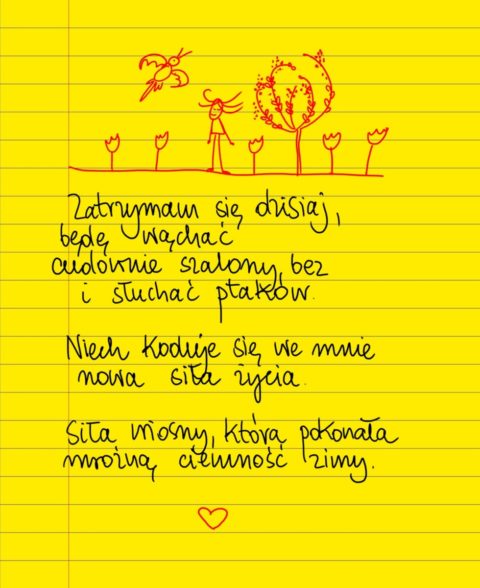 Zatrzymam się dzisiaj,
będę wąchać
cudownie szalony, bez
i słuchać ptaków.
Niech koduje się we mnie
nowa siła życia.
Siła wiosny, którą pokonała
mroźną ciemność zimy.